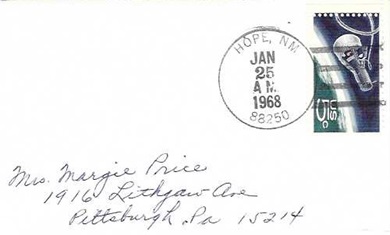 HOPE, NM
JAN
25
A M
1968
88250
US
5c
Mrs. Margie Price
1916 Lithgaw Ave
Pittsburgh, Pa 15214